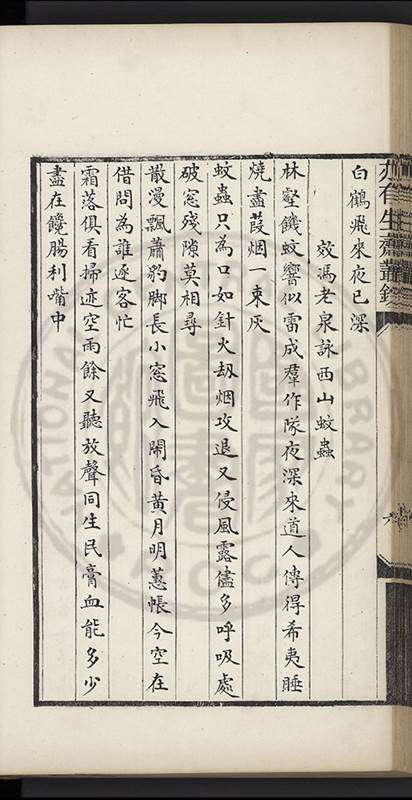 亦有生齋叢錄
白鶴飛來夜已深
效馮老泉詠西山蚊蟲
林壑饑蚊響似雷成羣作隊夜深來道人傳得希夷睡
燒盡葭烟一束灰
蚊蟲只為口如針火刼烟攻退又侵風露儘多呼吸處
破窓殘隙莫相尋
散漫飄蕭豹脚長小窓飛入鬧昏黃月明蕙帳今空在
借問為誰逐客忙
霜落俱看掃迹空雨餘又聽放聲同生民膏血能多少
盡在饞腸利嘴中